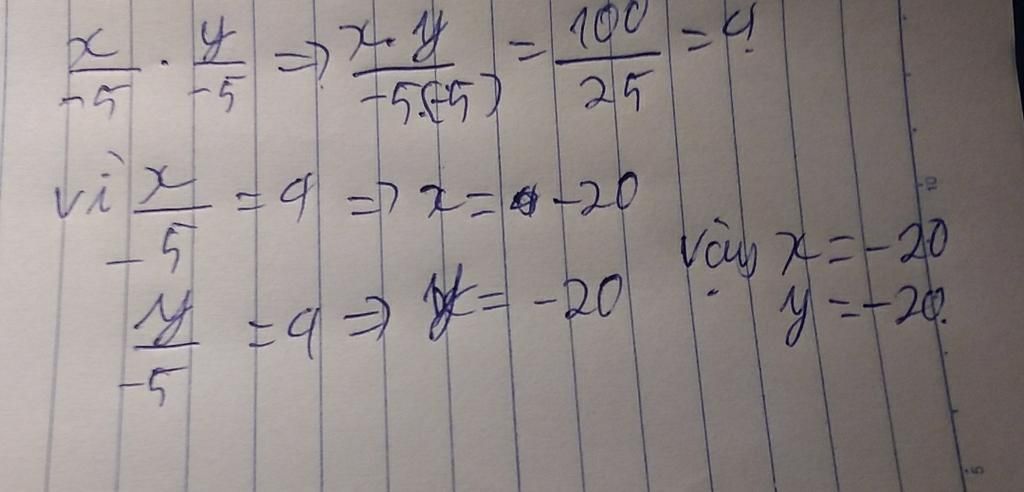 x/-5 . y/-5 => x.y/-5.(-5) = 100/25 = 4.
vì x/-5 = 4 => x = -20
y/-5 = 4 => y = -20
vậy x = -20
y = -20.
10
5